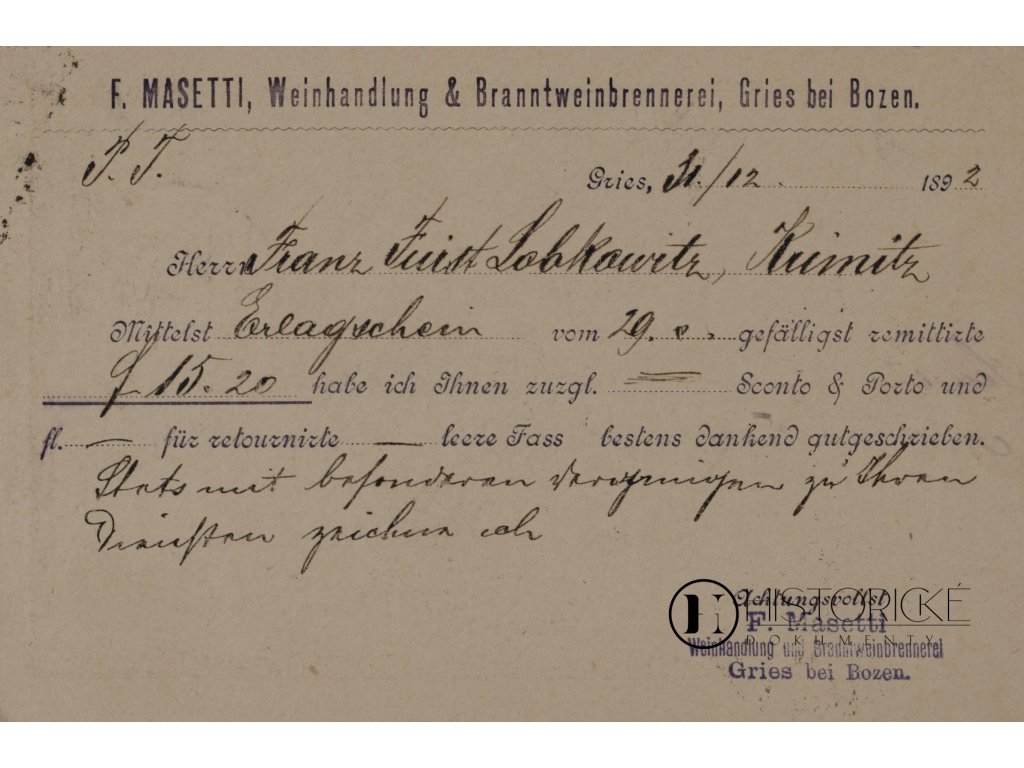 F. MASETTI, Weinhandlung & Branntweinbrennerei, Gries bei Bozen.
P. T.
Gries, 31./12 1892
Herrn Franz Fürst Lobkowitz,
Mittelst Erlagschein vom 29. c. gefälligst remittirte
f 15.20 habe ich Ihnen zuzgl. — Sconto & Porto und
fl. — für retournirte — leere Fass bestens dankend gutgeschrieben.
Stets mit besonderen Vergnügen zu Ihren
Diensten zeichne ich
Achtungsvollst
F. Masetti
Weinhandlung und Branntweinbrennerei
Gries bei Bozen.
HISTORICKÉ
DOKUMENTY